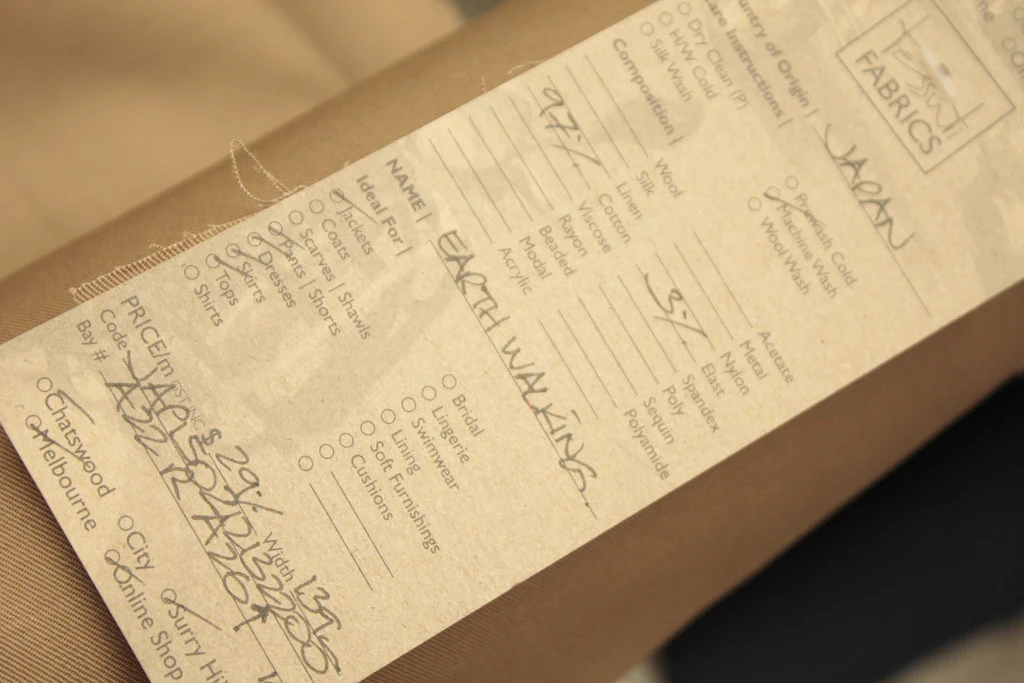 tessuti
FABRICS
Country of Origin | JAPAN
Care Instructions |
Dry Clean (P)
H/W Cold
Silk Wash
Prewash Cold
Machine Wash
Wool Wash
Composition |
Wool
Silk
Linen
97% Cotton
Viscose
Rayon
Beaded
Modal
Acrylic
Acetate
Metal
Nylon
3% Elast
Spandex
Poly
Sequin
Polyamide
NAME | EARTH WALKING
Ideal For |
Jackets
Coats
Scarves | Shawls
Pants | Shorts
Dresses
Skirts
Tops
Shirts
Bridal
Lingerie
Swimwear
Lining
Soft Furnishings
Cushions
PRICE/m $29 Width 139
Code
Bay #
Chatswood
City
Surry Hi
Melbourne
Online Shop